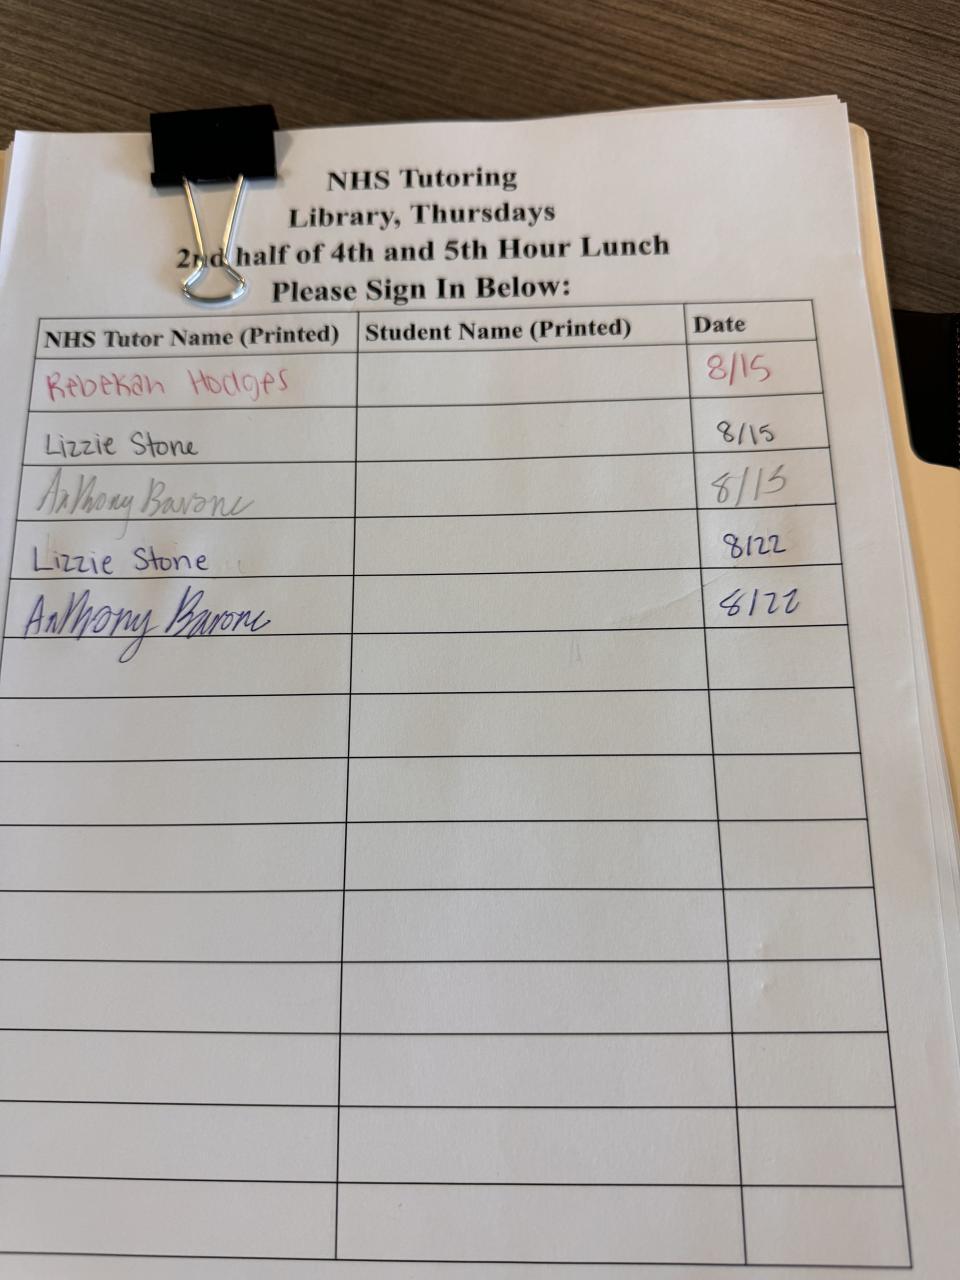 NHS Tutoring
Library, Thursdays
2nd half of 4th and 5th Hour Lunch
Please Sign In Below:
NHS Tutor Name (Printed) Student Name (Printed) Date
Rebekah Hodges 8/15
Lizzie Stone 8/15
Anthony Barone 8/15
Lizzie Stone 8/22
Anthony Barone 8/22